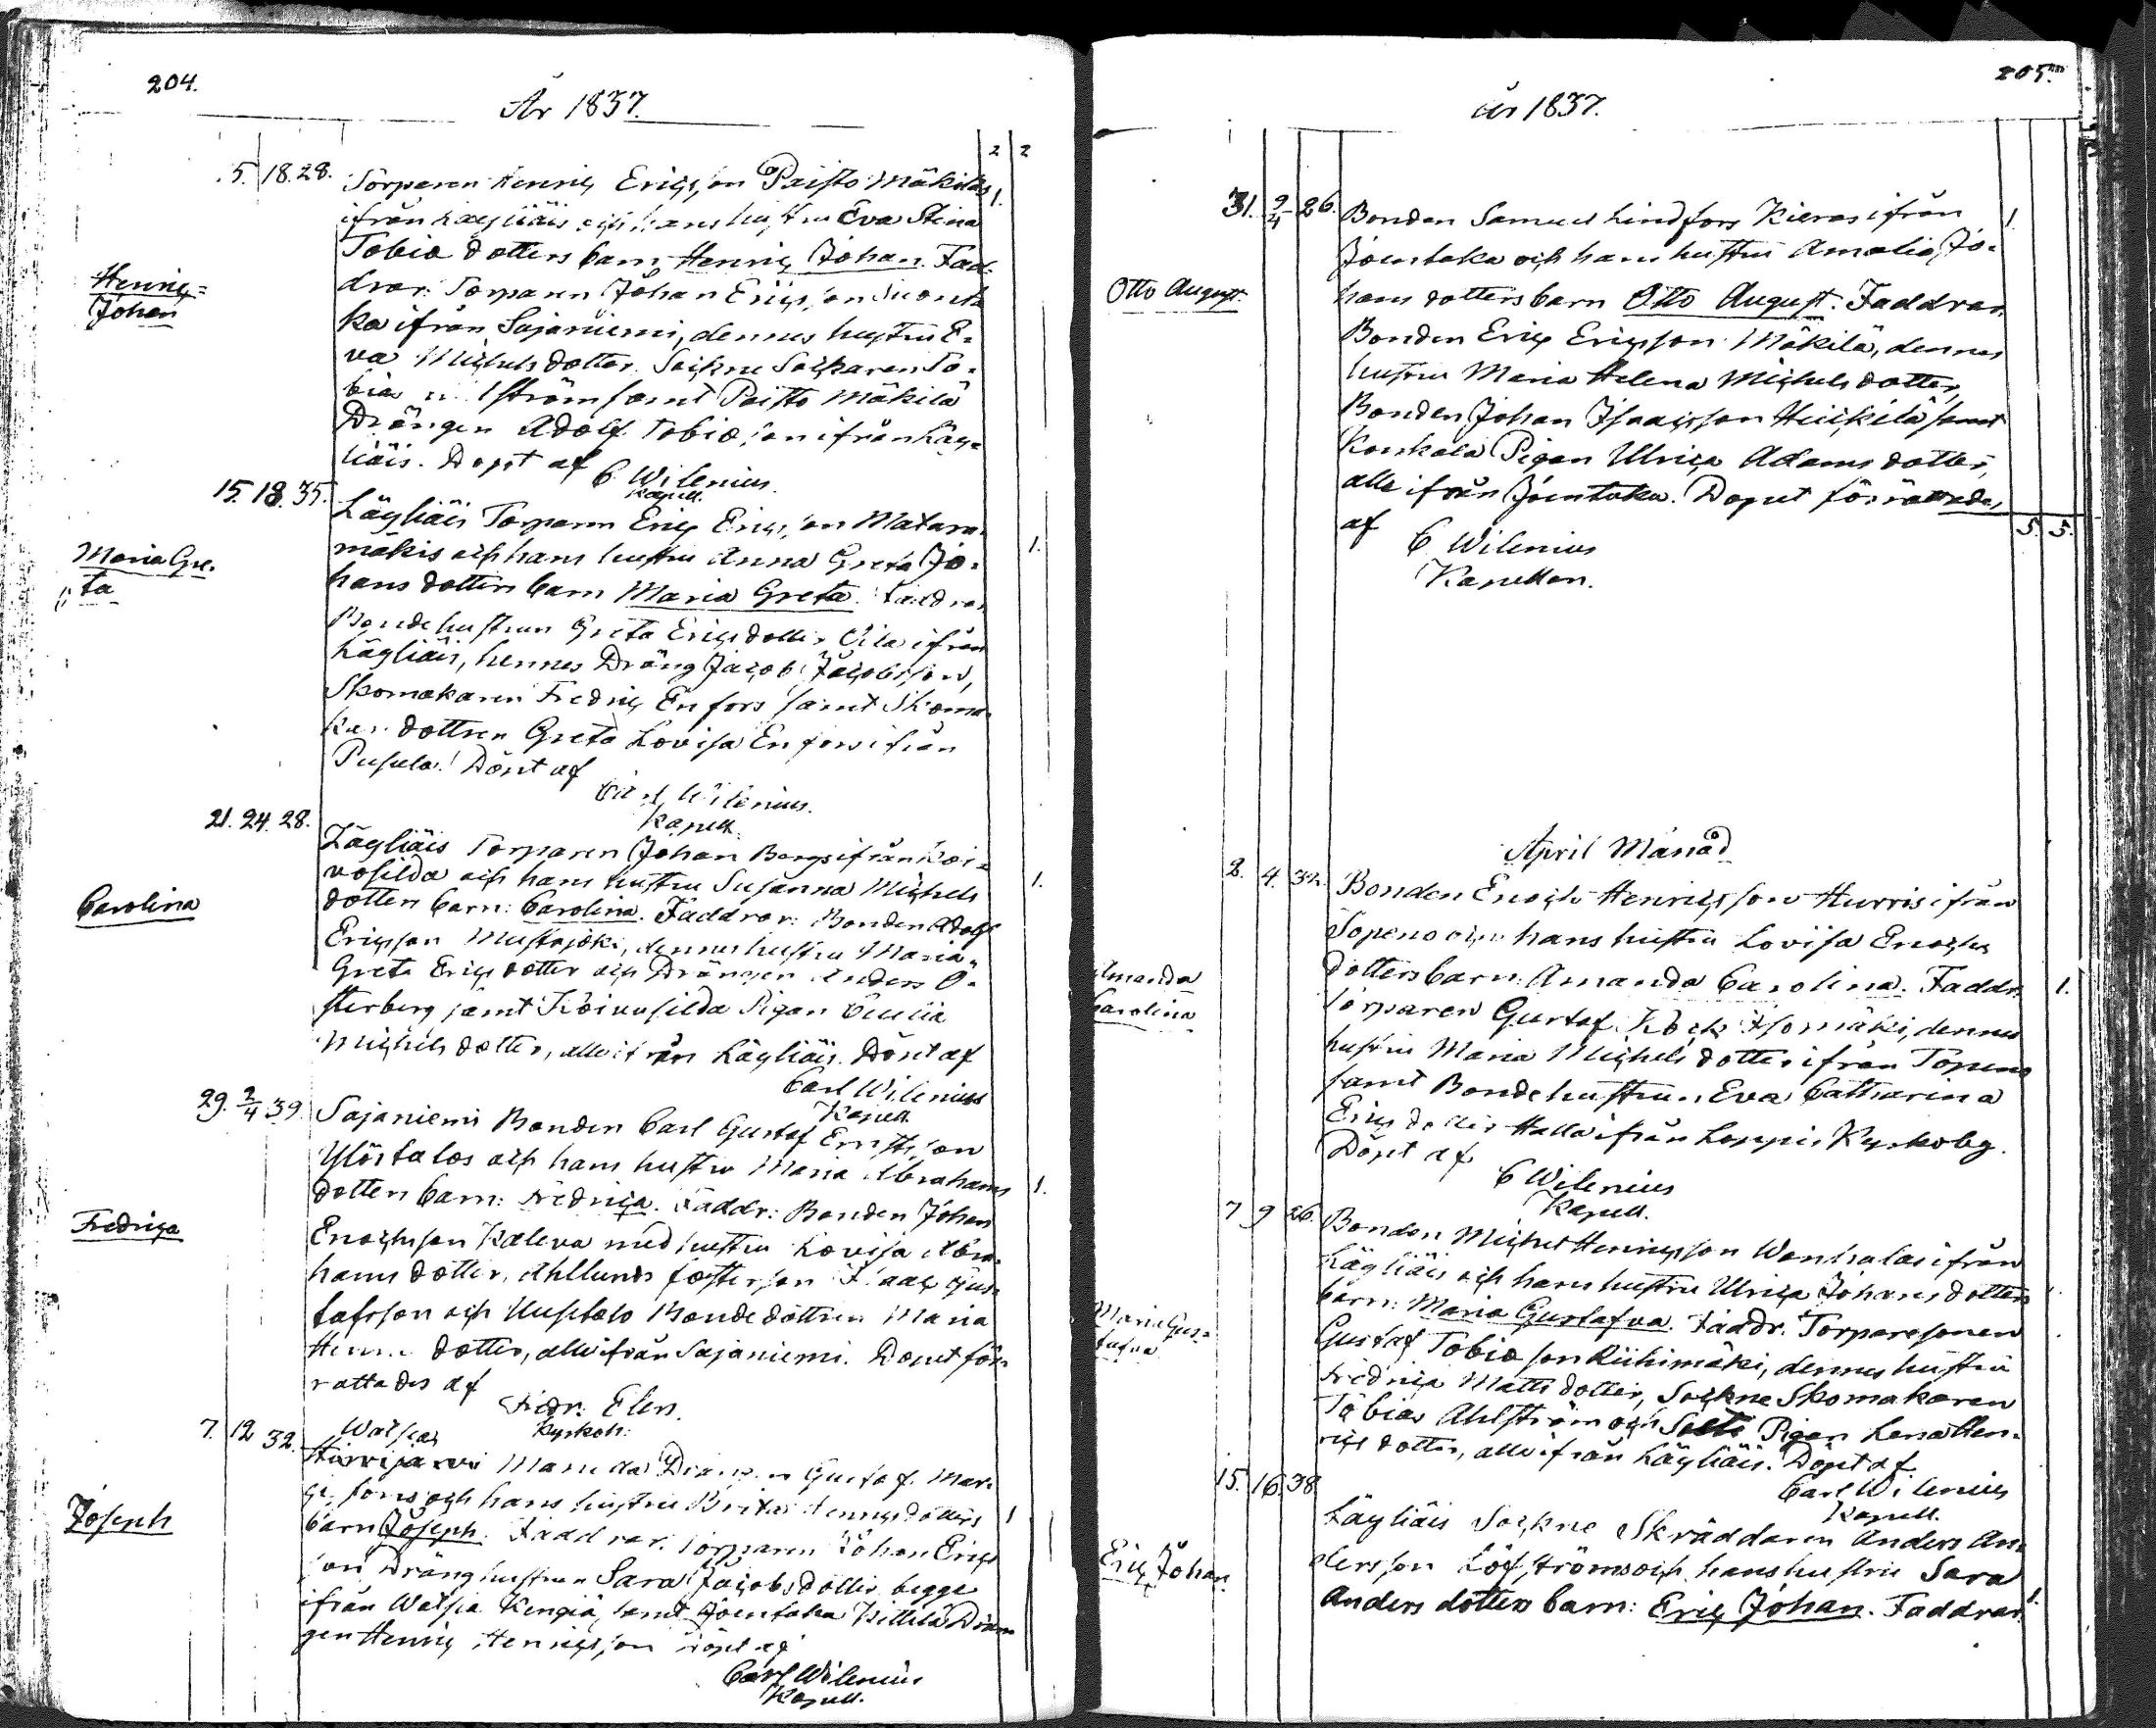 204.
År 1837.
2 2
5. 18. 28. Torparen Henric Ericsson Paisto Mäkilas 1.
ifrån Läyliäis och hans hustru Eva Stina
Tobiæ dotters barn Henric Johan. Fad-
Henric=
Johan
drar: Torparen Johan Ericsson
ka ifrån Sajaniemi, dennes hustru E-
va Michelsdotter. Sockne To-
bias ström samt Paisto Mäkilä
Drängen Adolf Tobiæson ifrån Läy-
liäis. Döpt af C Wilenius.
Kapell.
15. 18. 35. Läyliäis Torparen Eric Ericsson Matara-
mäkis och hans hustru Anna Greta Jo- 1.
Maria Gre-
ta
hans dotters barn Maria Greta. Faddrar
Bondehustrun Greta Ericsdotter ifrån
Läyliäis, hennes Dräng Jacob Jacobsson,
Skomakaren Fredric Enfors samt Skoma-
kar dottren Greta Lovisa Enfors ifrån
Pusula. Döpt af
Carl Wilenius.
Kapell.
21. 24. 28. Läyliäis Torparen Johan Bergs ifrån Koi-
vosilda och hans hustru Susanna Michels 1.
Carolina
dotters barn: Carolina. Faddrar: Bonden Adolf
Ericsson Mustajoki, dennes hustru Maria
Greta Erics dotter och Drängen Anders Ö-
sterberg samt Koivusilda Pigan
Michels dotter, alle ifrån Läyliäis. Döpt af
Carl Wilenius
Kapell.
29. 2/4 39. Sajaniemi Bonden Carl Gustaf Ernstsson
Ylöstalos och hans hustru Maria Abrahams
dotters barn: Fredrica. Faddr: Bonden Johan 1.
Fredrica
Enochsson Kaleva med hustru Lovisa Abra-
hams dotter, Ahllunds fosterson Isaac Gus-
tafsson och Uusitalo Bondedottren Maria
dotter, alle ifrån Sajaniemi. Dopet för-
rättades af
Fredr: Elers.
Kyrkoh:
7. 12 32. Watsias
Hirvijärvi Drängen Gustaf Mar-
sons och hans hustru Brita Henricsdotters 1
Joseph
barn Joseph. Faddrar. Torparen Johan Erics
son Dränghustrun Sara Jacobsdotter begge
ifrån Watsia Kengiä, samt Joentaka Kittilä Drän-
gen Henric Henricsson Döpt af
Carl Wilenius
Kapell.
205.
År 1837.
31. 2/4 26. Bonden Samuel Lindfors Kieras ifrån 1
Joentaka och hans hustru Amalia Jo-
Otto August.
hans dotters barn Otto August. Faddrar.
Bonden Eric Ericsson Mäkilä, dennes
hustru Maria Helena Michels dotter,
Bonden Johan Isaacsson Heickilä samt
Konkala Pigan Ulrica Adams dotter,
alle ifrån Joentaka. Dopet förrättades
af C Wilenius 5. 5.
Kapellan.
April Månad
2. 4. 32. Bonden Enoch Henricsson Hurris ifrån
Topeno och hans hustru Lovisa Enochs
Amanda
Carolina
dotters barn: Amanda Carolina. Faddr. 1.
Torparen Gustaf Isomäki, dennes
hustru Maria Michels dotter ifrån Topeno
samt Bondehustrun Eva Catharina
Erics dotter Halla ifrån Loppis Kyrkoby.
Döpt af
C Wilenius
Kapell.
7 9 26. Bonden Michel Henricsson Wanhalas ifrån
Läyliäis och hans hustru Ulrica Johans dotters
Maria Gus-
tafva
barn: Maria Gustafva. Faddr. Torparesonen
Gustaf Tobiæson Riihimäki, dennes hustru
Fredrica Matts dotter, Sockne Skomakaren
Tobias Ahlström och Pigan Lena Hen-
rics dotter, alle ifrån Läyliäis. Döpt af
Carl Wilenius
Kapell.
15. 16. 38 Läyliäis Sockne Skräddaren Anders An-
dersson Löfströms och hans hustru Sara
Eric Johan
Anders dotters barn: Eric Johan. Faddrar. 1.